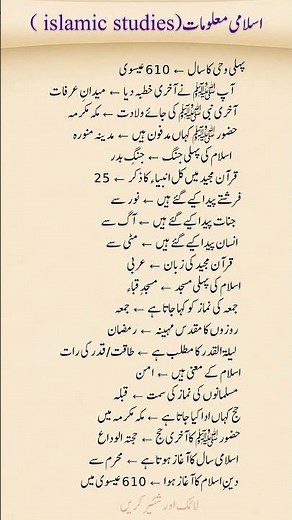 اسلامی معلومات(islamic studies )
پہلی وحی کا سال ← 610 عیسوی
آپ ﷺ نے آخری خطبہ دیا ← میدان عرفات
آخری نبی ﷺ کی جائے ولادت ← مکہ مکرمہ
حضور ﷺ کہاں مدفون ہیں ← مدینہ منورہ
اسلام کی پہلی جنگ ← جنگِ بدر
قرآن مجید میں کل انبیاء کا ذکر ← 25
فرشتے پیدا کیے گئے ہیں ← نور سے
جنات پیدا کیے گئے ہیں ← آگ سے
انسان پیدا کیے گئے ہیں ← مٹی سے
قرآن مجید کی زبان ← عربی
اسلام کی پہلی مسجد ← مسجد قباء
جمعہ کی نماز کو کہا جاتا ہے ← جمعہ
روزوں کا مقدس مہینہ ← رمضان
لیلۃ القدر کا مطلب ہے ← طاقت/قدر کی رات
اسلام کے معنی ہیں ← امن
مسلمانوں کی نماز کی سمت ← قبلہ
حج کہاں ادا کیا جاتا ہے ← مکہ مکرمہ میں
حضور ﷺ کا آخری حج ← حجتہ الوداع
اسلامی سال کا آغاز ہوتا ہے ← محرم سے
دین اسلام کا آغاز ہوا ← 610 عیسوی میں
لائک اور شئیر کریں